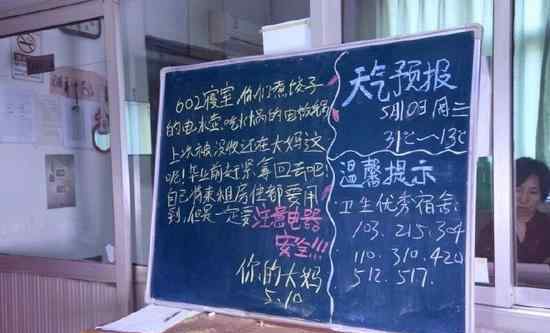 602寝室,你们煮饺子
的电水壶、吃火锅的电饭锅
上次被没收还在大妈这
呢!毕业前赶紧拿回去吧!
自己将来租房住都要用
到,但是一定要注意电器
安全!!!
你的大妈
5.10
天气预报
5月10日 周二
31℃~13℃
温馨提示
卫生优秀宿舍:
103.215.304
110.310.420
512.517.